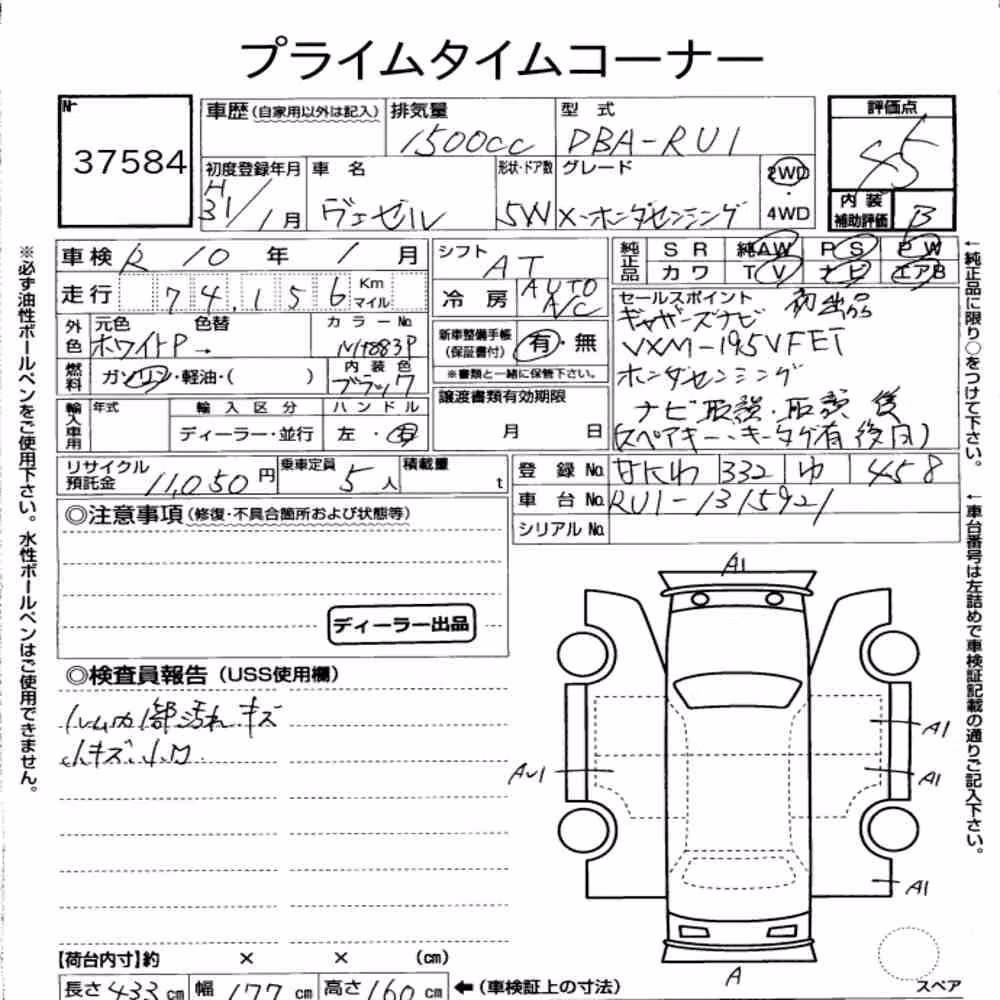 プライムタイムコーナー
№
37584
車歴(自家用以外は記入)
排気量
1500cc
型 式
DBA-RU1
評価点
初度登録年月
H
31/1月
車 名
ヴェゼル
形状・ドア数
5W
グレード
X-ホンダセンシング
2WD
・
4WD
内装
補助評価
B
車検 R 10 年 1 月
走行 74,156 Km マイル
シフト
AT
冷房
AUTO
A/C
純正品
SR 純AW PS PW
カワ TV ナビ エアB
外色
元色 色替
ホワイトP →
カラーNo.
NH883P
燃料
ガソリン・軽油・( )
内装色
ブラック
新車整備手帳
(保証書付)
有・無
※書類と一緒に保管下さい。
セールスポイント 初出品
ギャザーズナビ
VXM-195VFEI
ホンダセンシング
ナビ取説・取説 後
(スペアキー、キータグ有 後日)
輸入車用
年式
輸入区分
ディーラー・並行
ハンドル
左・右
譲渡書類有効期限
月 日
リサイクル
預託金
11,050円
乗車定員
5人
積載量
t
登録No. なにわ 332 ゆ 458
車台No. RU1-1315921
シリアルNo.
◎注意事項(修復・不具合箇所および状態等)
ディーラー出品
◎検査員報告(USS使用欄)
ルーム内1部汚れ キズ
小キズ・小凹
A1
A1
AU1
A1
A1
A
スペア
【荷台内寸】約 × × (cm)
長さ 433 cm 幅 177 cm 高さ 160 cm ←(車検証上の寸法)
※必ず油性ボールペンをご使用下さい。水性ボールペンはご使用できません。
←純正品に限り○をつけて下さい。
←車台番号は左詰めで車検証記載の通りご記入下さい。